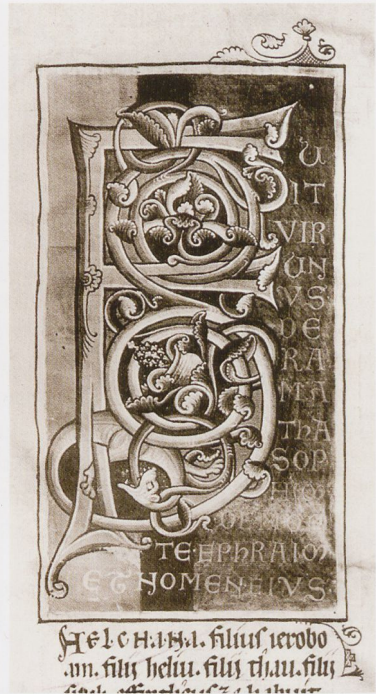 F U
IT
VIR
UN
VS
DE
RA
MA
THA
SOP
HIM
DE MON
TE·EPHRAIM
ET NOMEN EIVS
HELCHANA. filius ierobo
.am. filii heliu. filii thau. filii